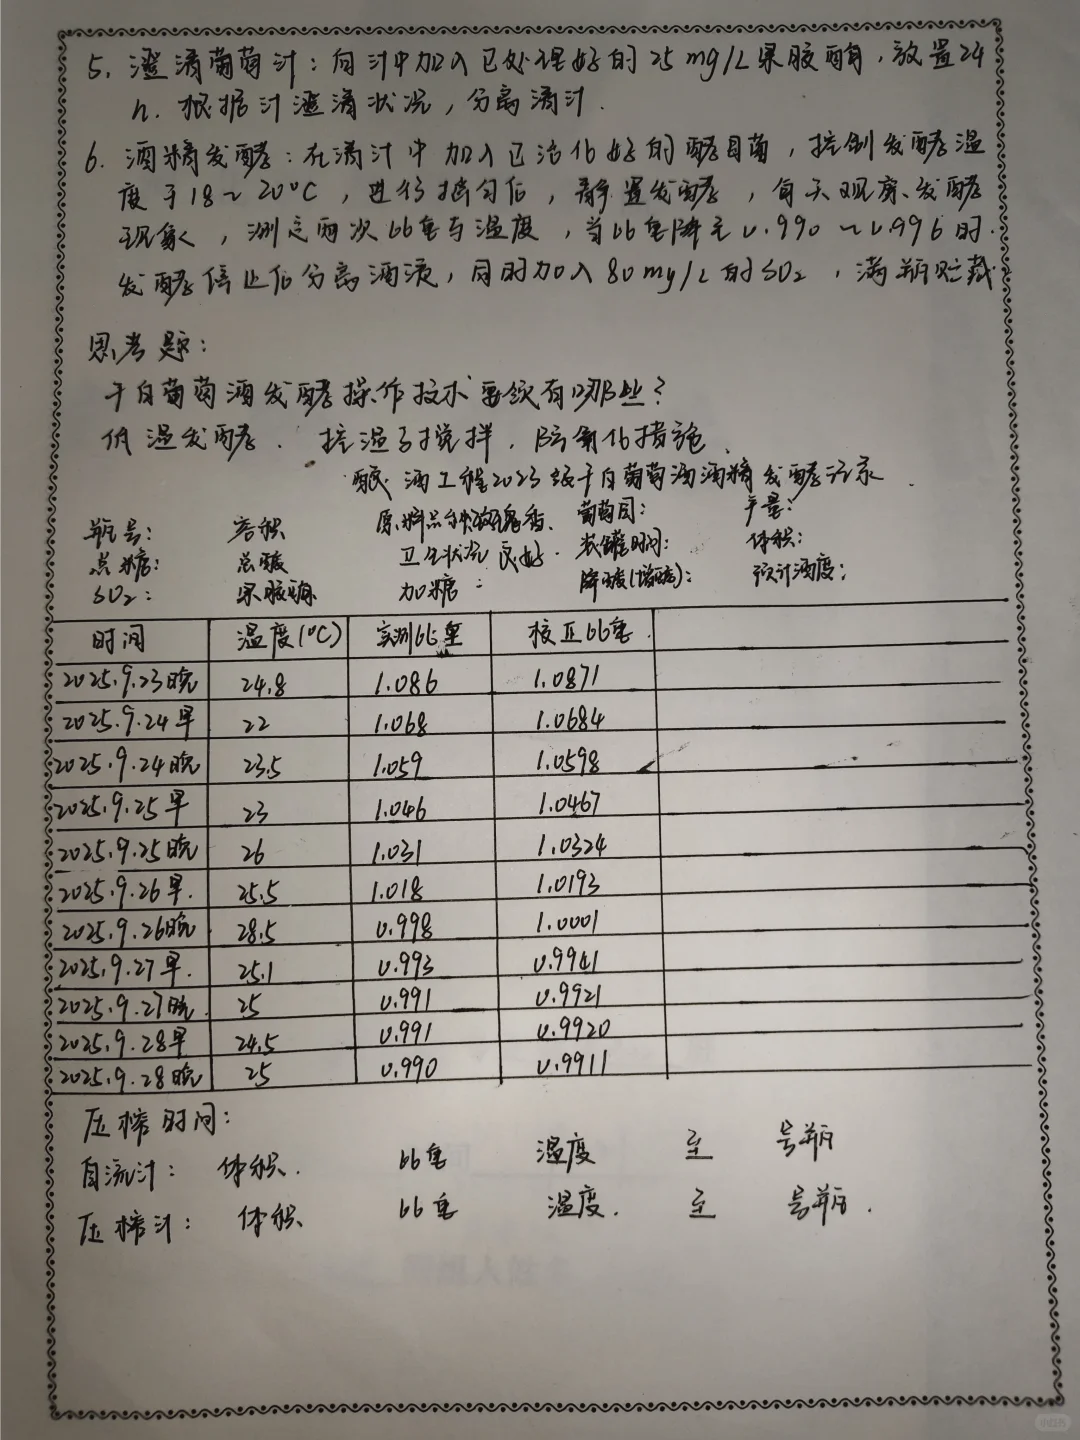 5. 澄清葡萄汁：向汁中加入已处理好的25mg/L果胶酶，放置24
h. 根据汁澄清状况，分离清汁.
6. 酒精发酵：在清汁中加入已活化好的酵母菌，控制发酵温
度于18~20°C，进行搅匀后，静置发酵，每天观察发酵
现象，测定两次比重与温度，当比重降至0.990~0.996时.
发酵停止后分离酒液，同时加入80mg/L的SO2，满瓶贮藏
思考题：
干白葡萄酒发酵操作技术要领有哪些？
低温发酵. 控温与搅拌，防氧化措施.
酿酒工程2023级干白葡萄酒酒精发酵记录.
瓶号： 容积 原料品种玫瑰香. 葡萄园： 产量：
总糖： 总酸 卫生状况 良好. 装罐时间： 体积：
SO2： 果胶酶 加糖： 降酸(增酸)： 预计酒度：
时间 温度(°C) 实测比重 校正比重.
2025.9.23晚 24.8 1.086 1.0871
2025.9.24早 22 1.068 1.0684
2025.9.24晚 23.5 1.059 1.0598
2025.9.25早 23 1.046 1.0467
2025.9.25晚 26 1.031 1.0324
2025.9.26早. 25.5 1.018 1.0193
2025.9.26晚 28.5 0.998 1.0001
2025.9.27早. 25.1 0.993 0.9941
2025.9.27晚. 25 0.991 0.9921
2025.9.28早 24.5 0.991 0.9920
2025.9.28晚 25 0.990 0.9911
压榨时间：
自流汁： 体积. 比重 温度 至 号瓶
压榨汁： 体积 比重 温度. 至 号瓶.
小红书